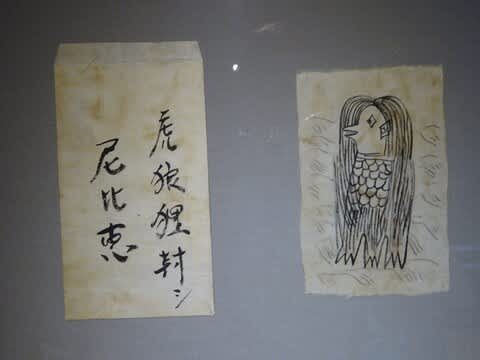 虎狼狸封シ
尼比恵